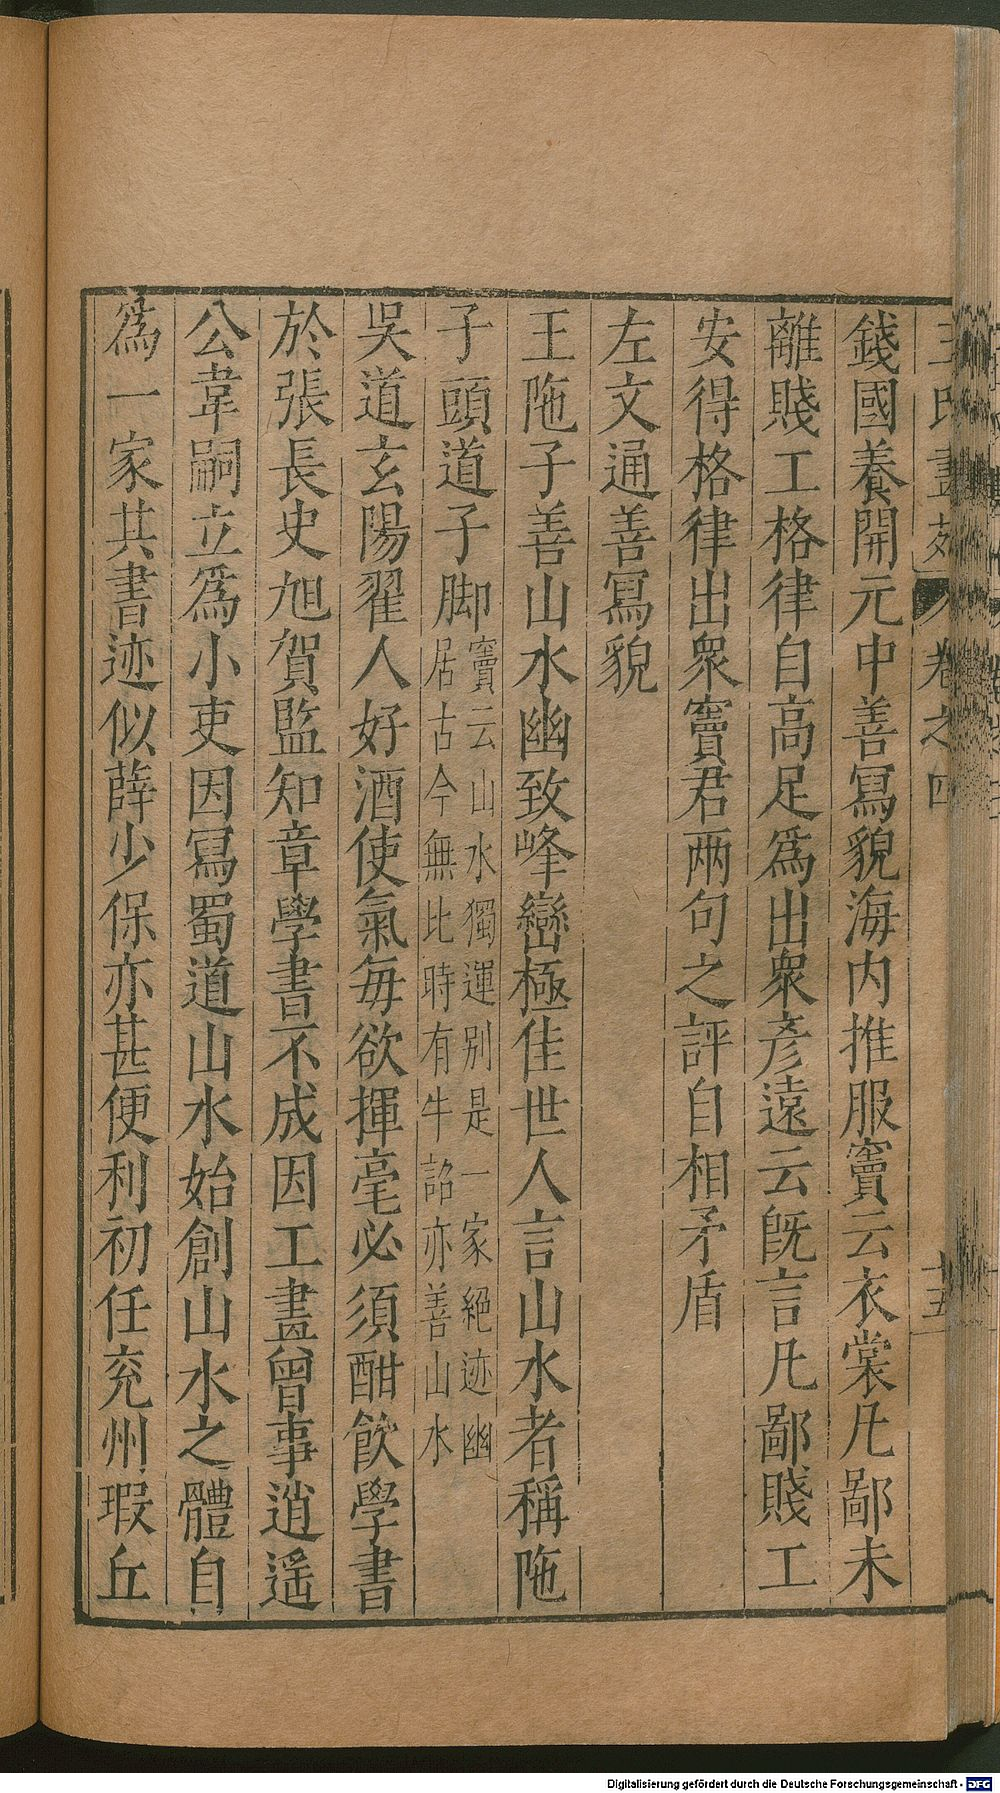 王氏畫苑 卷之四 十五
錢國養開元中善寫貌海内推服竇云衣裳凡鄙未
離賤工格律自高足爲出衆彦遠云旣言凡鄙賤工
安得格律出衆竇君兩句之評自相矛盾
左文通善寫貌
王陁子善山水幽致峰巒極佳世人言山水者稱陁
子頭道子脚
竇云山水獨運别是一家絕迹幽
居古今無比時有牛詔亦善山水
吳道玄陽翟人好酒使氣每欲揮毫必須酣飲學書
於張長史旭賀監知章學書不成因工畫曾事逍遥
公韋嗣立爲小吏因寫蜀道山水始創山水之體自
爲一家共書迹似薛少保亦甚便利初任兖州瑕丘
Digitalisierung gefördert durch die Deutsche Forschungsgemeinschaft - DFG